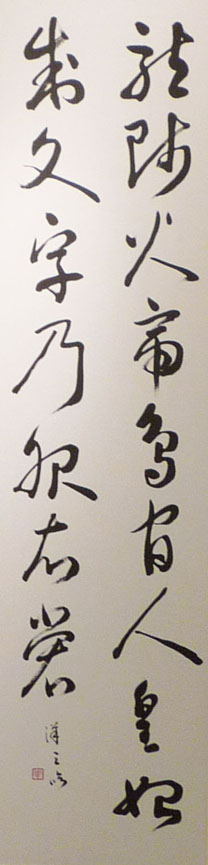 龍師火帝鳥官人皇始
制文字乃服衣裳